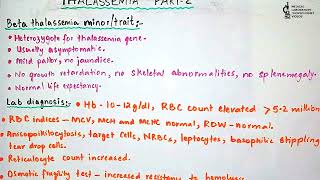 THALASSEMIA PART-2
MEDICAL LABORATORY TECHNOLOGIST VIDEOS
Beta thalassemia minor/trait:-
• Heterozygote for thalassemia gene.
• Usually asymptomatic.
• Mild pallor, no jaundice.
• No growth retardation, no skeletal abnormalities, no splenomegaly.
• Normal life expectancy.
Lab diagnosis:- • Hb - 10-12g/dl, RBC count elevated > 5.2 million
• RBC indices - MCV, MCH and MCHC normal, RDW - normal.
• Anisopoikilocytosis, target cells, NRBCs, leptocytes, basophilic stippling
tear drop cells.
• Reticulocyte count increased.
• Osmotic fragility test - increased resistency to hemolys